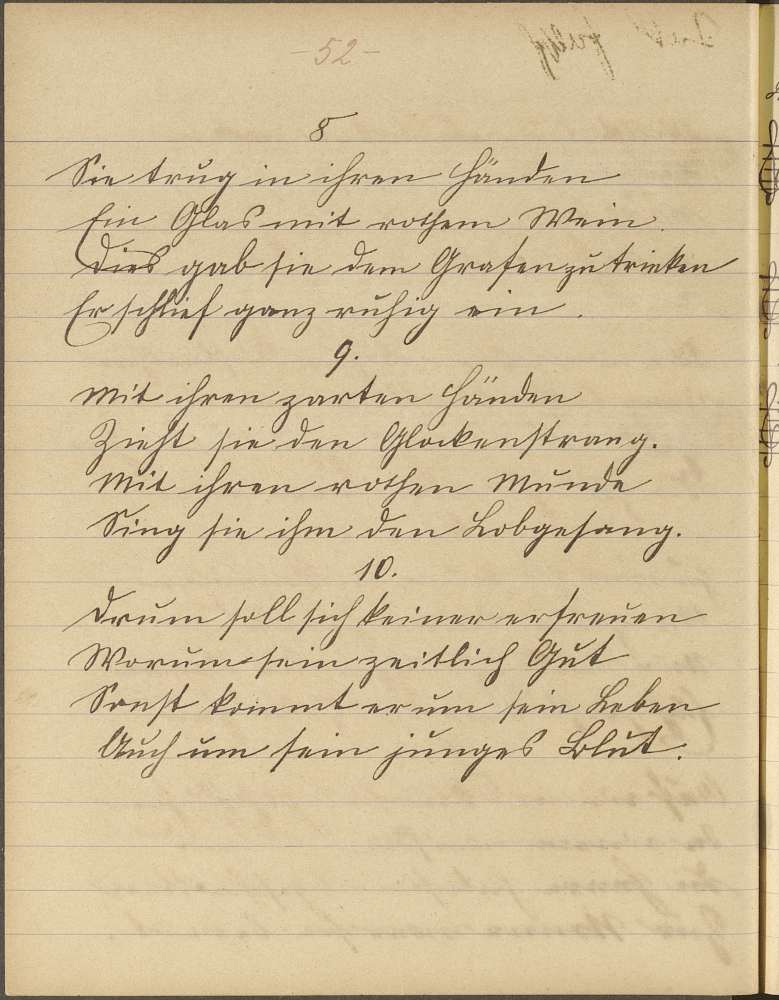 -52-
8
Sie trug in ihren Händen
Ein Glas mit rothem Wein.
Dies gab sie dem Grafen zu trinken
Er schlief ganz ruhig ein.
9.
Mit ihren zarten Händen
Zieht sie den Glockenstrang.
Mit ihren rothen Munde
Sing sie ihm den Lobgesang.
10.
Drum soll sich keiner erfreuen
Worum sein zeitlich Gut
Sonst kommt er um sein Leben
Auch um sein junges Blut.